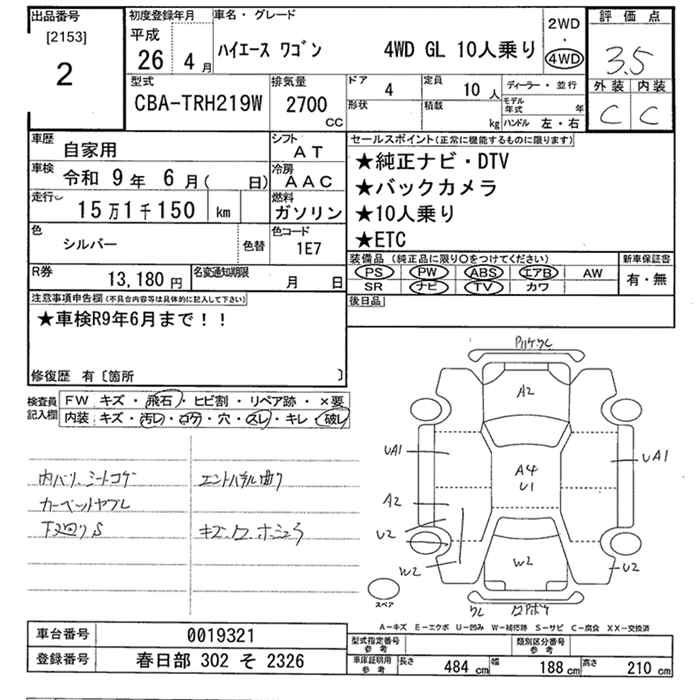 出品番号
[2153]
2
初度登録年月
平成
26 4月
車名・グレード
ハイエース ワゴン 4WD GL 10人乗り
2WD
・
4WD
評価点
3.5
外装 内装
C C
型式
CBA-TRH219W
排気量
2700
CC
ドア
4
形状
定員
10人
積載
kg
ディーラー・並行
モデル年式 年
ハンドル 左・右
車歴
自家用
シフト
AT
車検
令和 9年 6月( 日)
冷房
AAC
走行
15万1千150 km
燃料
ガソリン
色
シルバー
色替
色コード
1E7
R券
13,180円
名変通知期限
月 日
セールスポイント(正常に機能するものに限ります)
★純正ナビ・DTV
★バックカメラ
★10人乗り
★ETC
装備品 (純正品に限り○をつけてください)
PS PW ABS エアB AW
SR ナビ TV カワ
新車保証書
有・無
後日品
注意事項申告欄(不具合内容等は具体的に記入して下さい)
★車検R9年6月まで!!
修復歴 有〔箇所 〕
検査員記入欄
FW キズ・飛石・ヒビ割・リペア跡・×要
内装 キズ・汚レ・コゲ・穴・スレ・キレ・破レ
内バリ、シートコゲ
カーペットヤブレ
下廻りS
エントハネル曲り
A2
UA1
UA1
A4
U1
A2
U2
W2
W2
U2
スペア
A－キズ E－エクボ U－凹み W－補修跡 S－サビ C－腐食 XX－交換済
車台番号
0019321
登録番号
春日部 302 そ 2326
型式指定番号
参考
類別区分番号
参考
車庫証明用
参考
長さ 484cm 幅 188cm 高さ 210cm